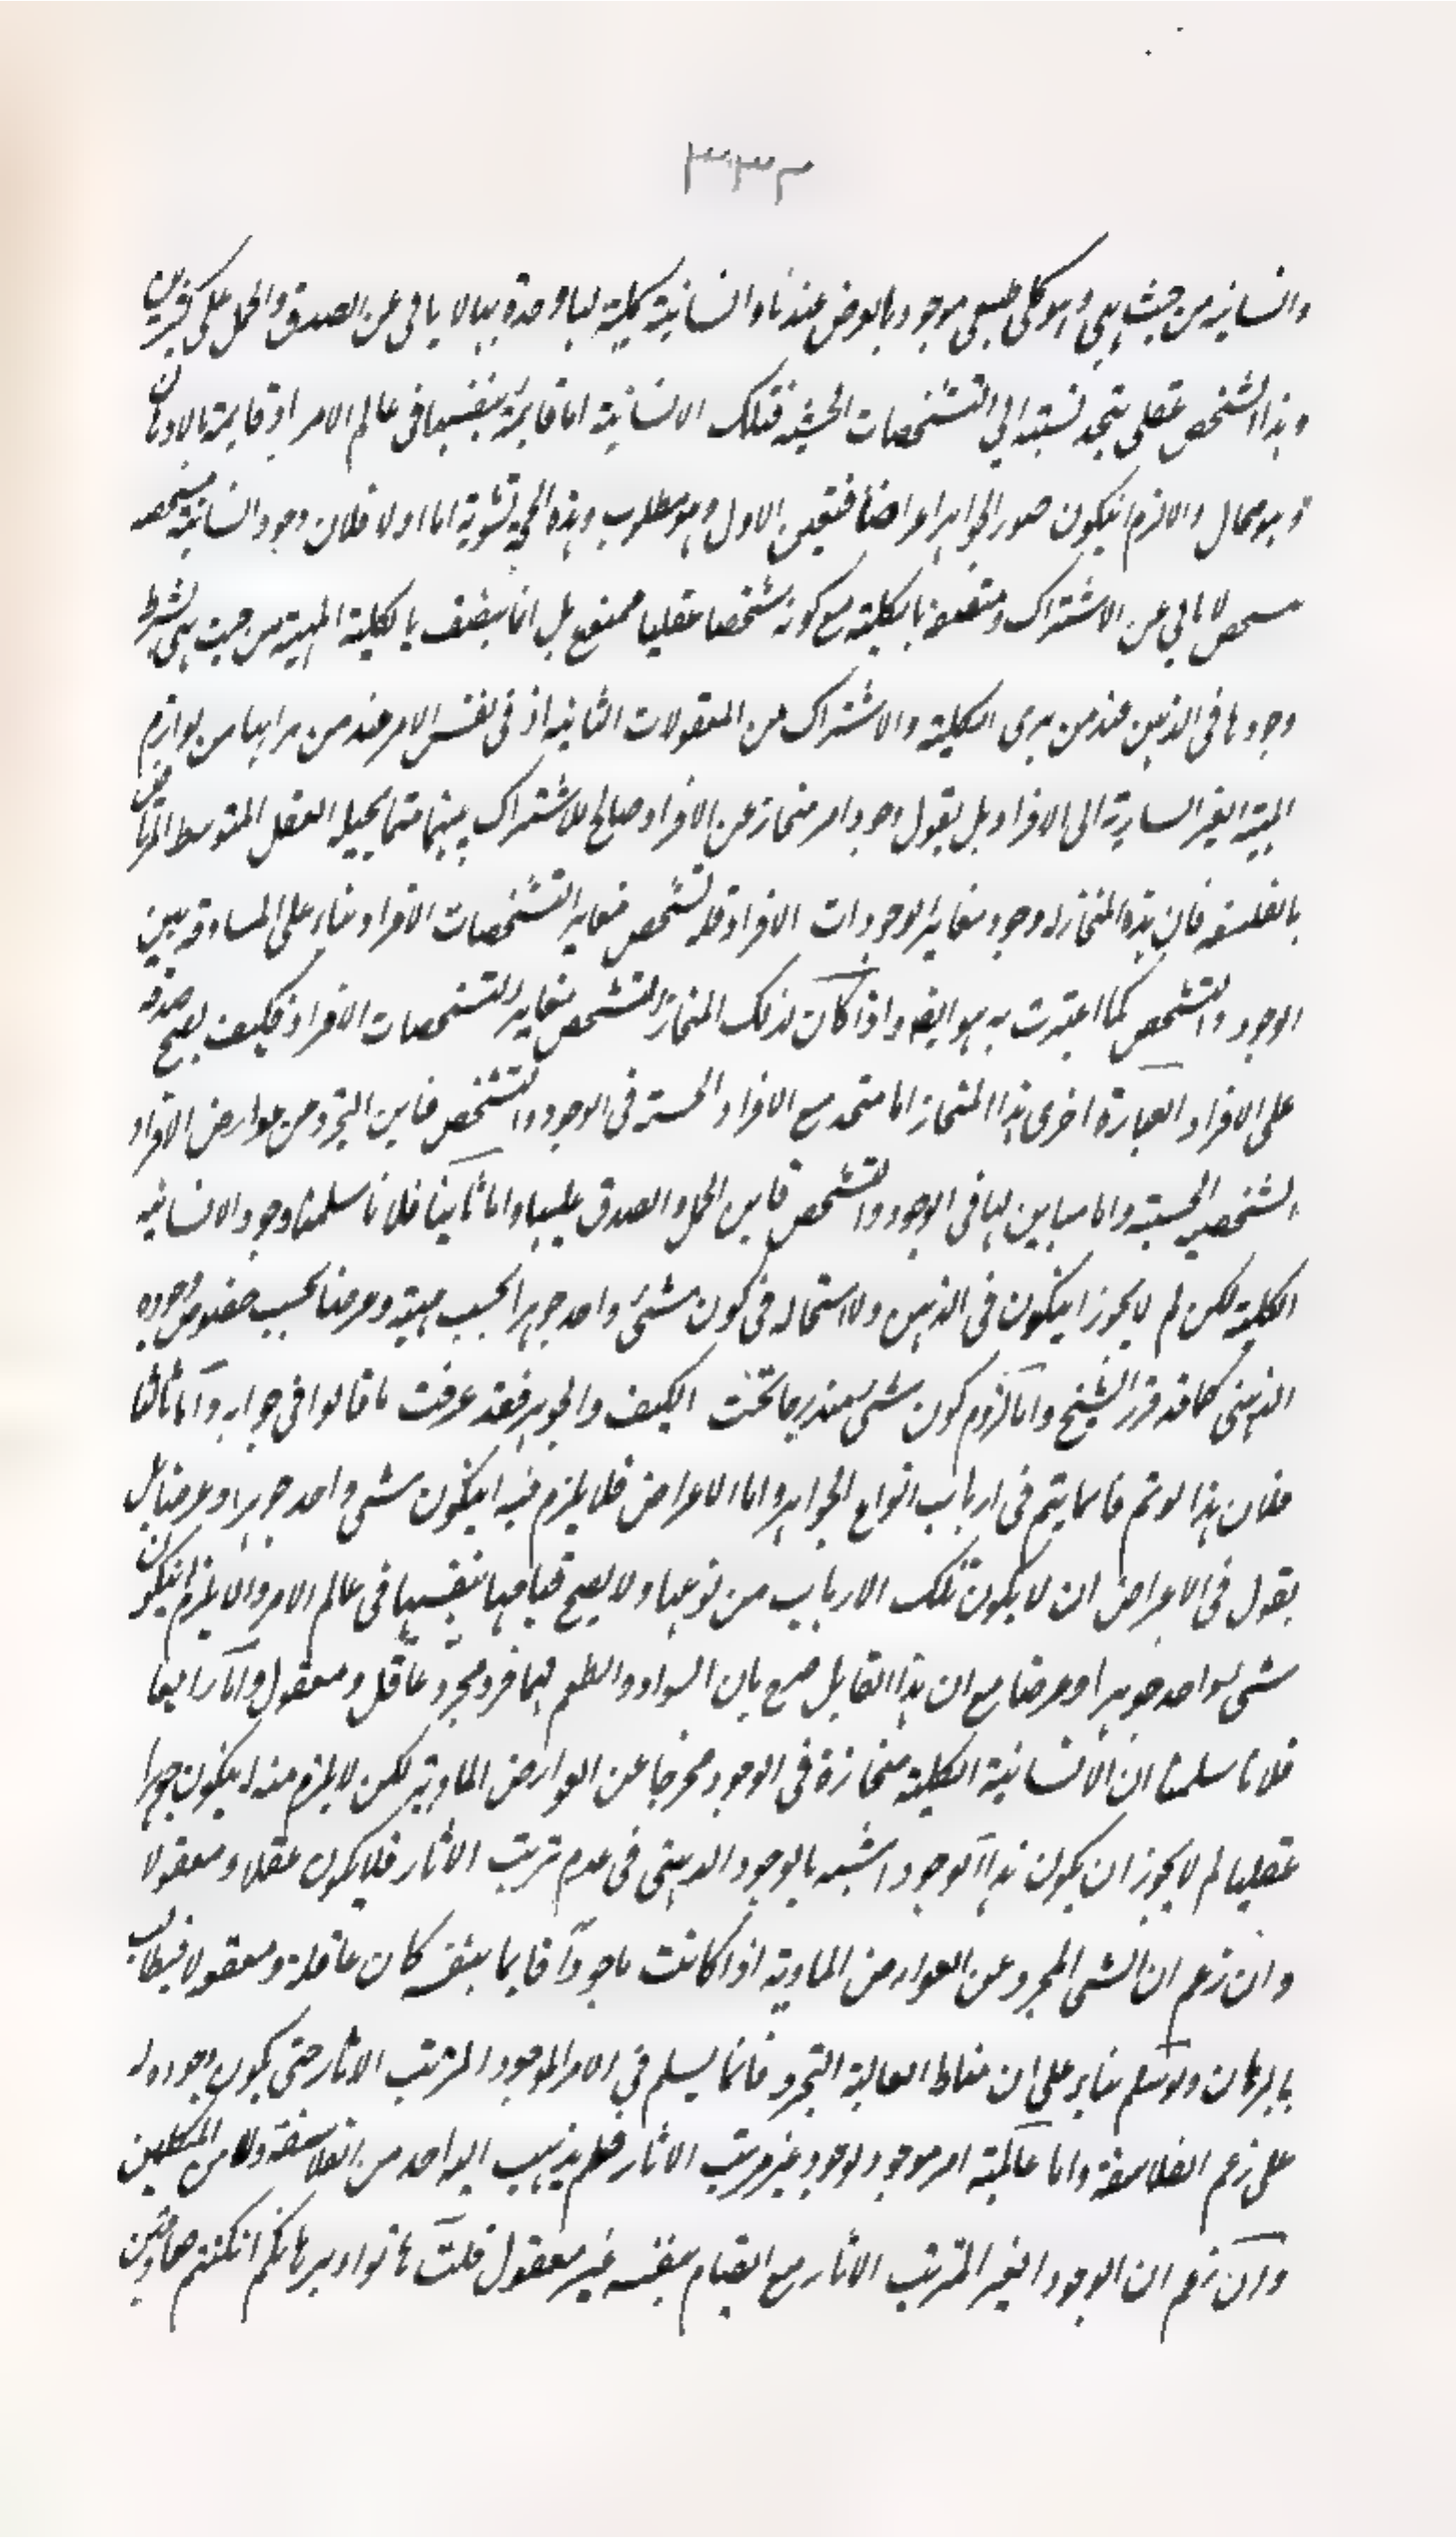 ٣٣٢
وانسانية من حيث هي وهو كلي طبعي موجود بالعرض عندنا وانسانية كلية لها وحدة بها لا يابى عن الصدق والحمل على كثيرين
وهذا التشخص عقلي يتحد نسبته الى التشخصات الحسية فتلك الانسانية اما قايمة بنفسها في عالم الامر او قايمة بالاذهان
وهو محال والا لزم ان يكون صور الجواهر اعراضا فتعين الاول وهو مطلوب وهذه الحجة اما اولا فلان وجود انسانية متشخصة
بتشخص لا يابى عن الاشتراك ومتصفة بالكلية مع كونه شخصا عقليا ممنوع بل انما يتصف بالكلية المهية من حيث هي بشرط
وجودها في الذهن عند من يرى الكلية والاشتراك من المعقولات الثانية او في نفس الامر عند من يراها من لوازم
المهية الغير السارية الى الافراد بل نقول وجود امر منحاز عن الافراد صالح للاشتراك بينها مما يحيله العقل المتوسط المرتاض
بالفلسفة فان هذه المنحاز له وجود مغاير لوجودات الافراد فله تشخص مغاير لتشخصات الافراد بناء على المساوقة بين
الوجود والتشخص كما اعترف به هو ايضا واذا كان لذلك المنحاز التشخص مغاير لتشخصات الافراد فكيف يصح صدقه
على الافراد العبارة اخرى هذا المنحاز اما متحد مع الافراد الحسية في الوجود والتشخص فاين التجرد من عوارض الافراد
الشخصية الحسية واما مباين لها في الوجود والتشخص فاين الحمل والصدق عليها واما ثانيا فلانا سلمنا وجود الانسانية
الكلية لكن لم لا يجوز ان يكون في الذهن ولا استحالة في كون شيء واحد جوهرا بحسب مهية وعرضا بحسب خصوص وجوده
الذهني كما قد قرر الشيخ واما لزوم كون شيء مندرجا تحت الكيف والجوهر فقد عرفت ما قالوا في جوابه واما ثالثا
فلان هذا لو تم فانما يتم في ارباب انواع الجواهر واما الاعراض فلا يلزم فيه ان يكون شيء واحد جوهرا وعرضا بل
نقول في الاعراض ان لا يكون تلك الارباب من نوعها ولا يصح قيامها بنفسها في عالم الامر والا يلزم ان يكون
شيء واحد جوهرا وعرضا مع ان هذا القايل صرح بان السواد والطعم لهما فرد مجرد عاقل ومعقول واما رابعا
فلانا سلمنا ان الانسانية الكلية منحازة في الوجود مجردا عن العوارض المادية لكن لا يلزم منه ان يكون جوهرا
عقليا لم لا يجوز ان يكون هذا الوجود اشبه بالوجود الذهني في عدم ترتب الاثار فلا يكون عقلا ومعقولا
وان زعم ان الشيء المجرد عن العوارض المادية اذا كانت موجودا قايما بنفسه كان عاقلا ومعقولا فيطالب
بالبرهان ولو سلم بناء على ان مناط العالمية التجرد فانما يسلم في الامر الموجود المترتب الاثار حتى يكون وجوده له
على زعم الفلاسفة واما عالمية امر موجود لوجود غير مترتب الاثار فلم يذهب اليه احد من الفلاسفة ولا من المتكلمين
وان زعم ان الوجود الغير المترتب الاثار مع القيام بنفسه غير معقول قلت هاتوا برهانكم ان كنتم صادقين